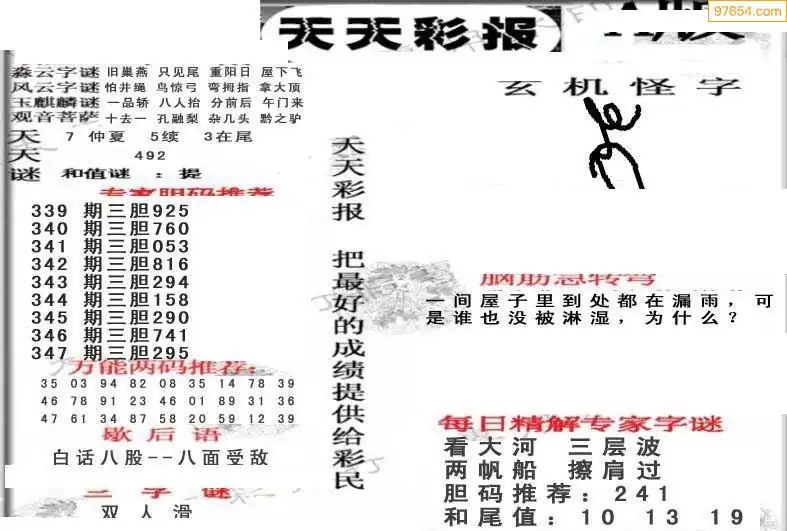 97654.com
天天彩报
A版
淼云字谜 旧巢燕 只见尾 重阳日 屋下飞
风云字谜 怕井绳 鸟惊弓 弯拇指 拿大顶
玉麒麟谜 一品轿 八人抬 分前后 午门来
观音菩萨 十去一 孔融梨 杂几头 黔之驴
天 7 仲夏 5续 3在尾
天 492
谜 和值谜 : 提
专家胆码推荐
339 期三胆925
340 期三胆760
341 期三胆053
342 期三胆816
343 期三胆294
344 期三胆158
345 期三胆290
346 期三胆741
347 期三胆295
万能两码推荐:
35 03 94 82 08 35 14 78 39
46 78 91 23 46 01 89 31 36
47 61 34 87 58 20 59 12 39
歇后语
白话八股--八面受敌
三字谜
双人滑
天天彩报 把最好的成绩提供给彩民
玄机怪字
脑筋急转弯
一间屋子里到处都在漏雨，可
是谁也没被淋湿，为什么？
每日精解专家字谜
看大河 三层波
两帆船 擦肩过
胆码推荐: 241
和尾值: 10 13 19